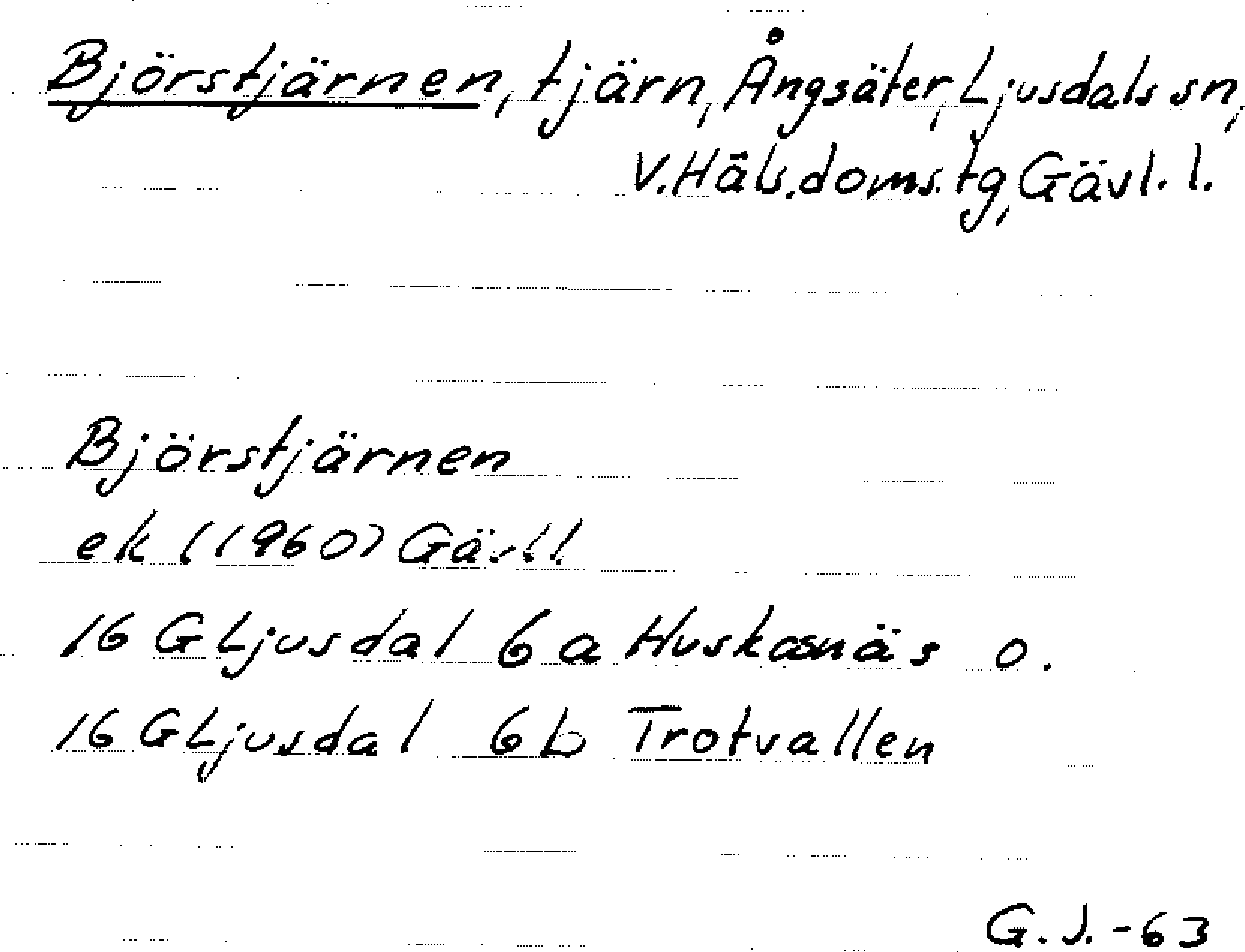 Björstjärnen, tjärn, Ångsäter, Ljusdals sn,
V. Häls. doms. tg, Gävl. l.
Björstjärnen
ek (1960) Gävl l
16 G Ljusdal 6 a Huskasnäs o.
16 G Ljusdal 6 b Trotvallen
G. J. -63